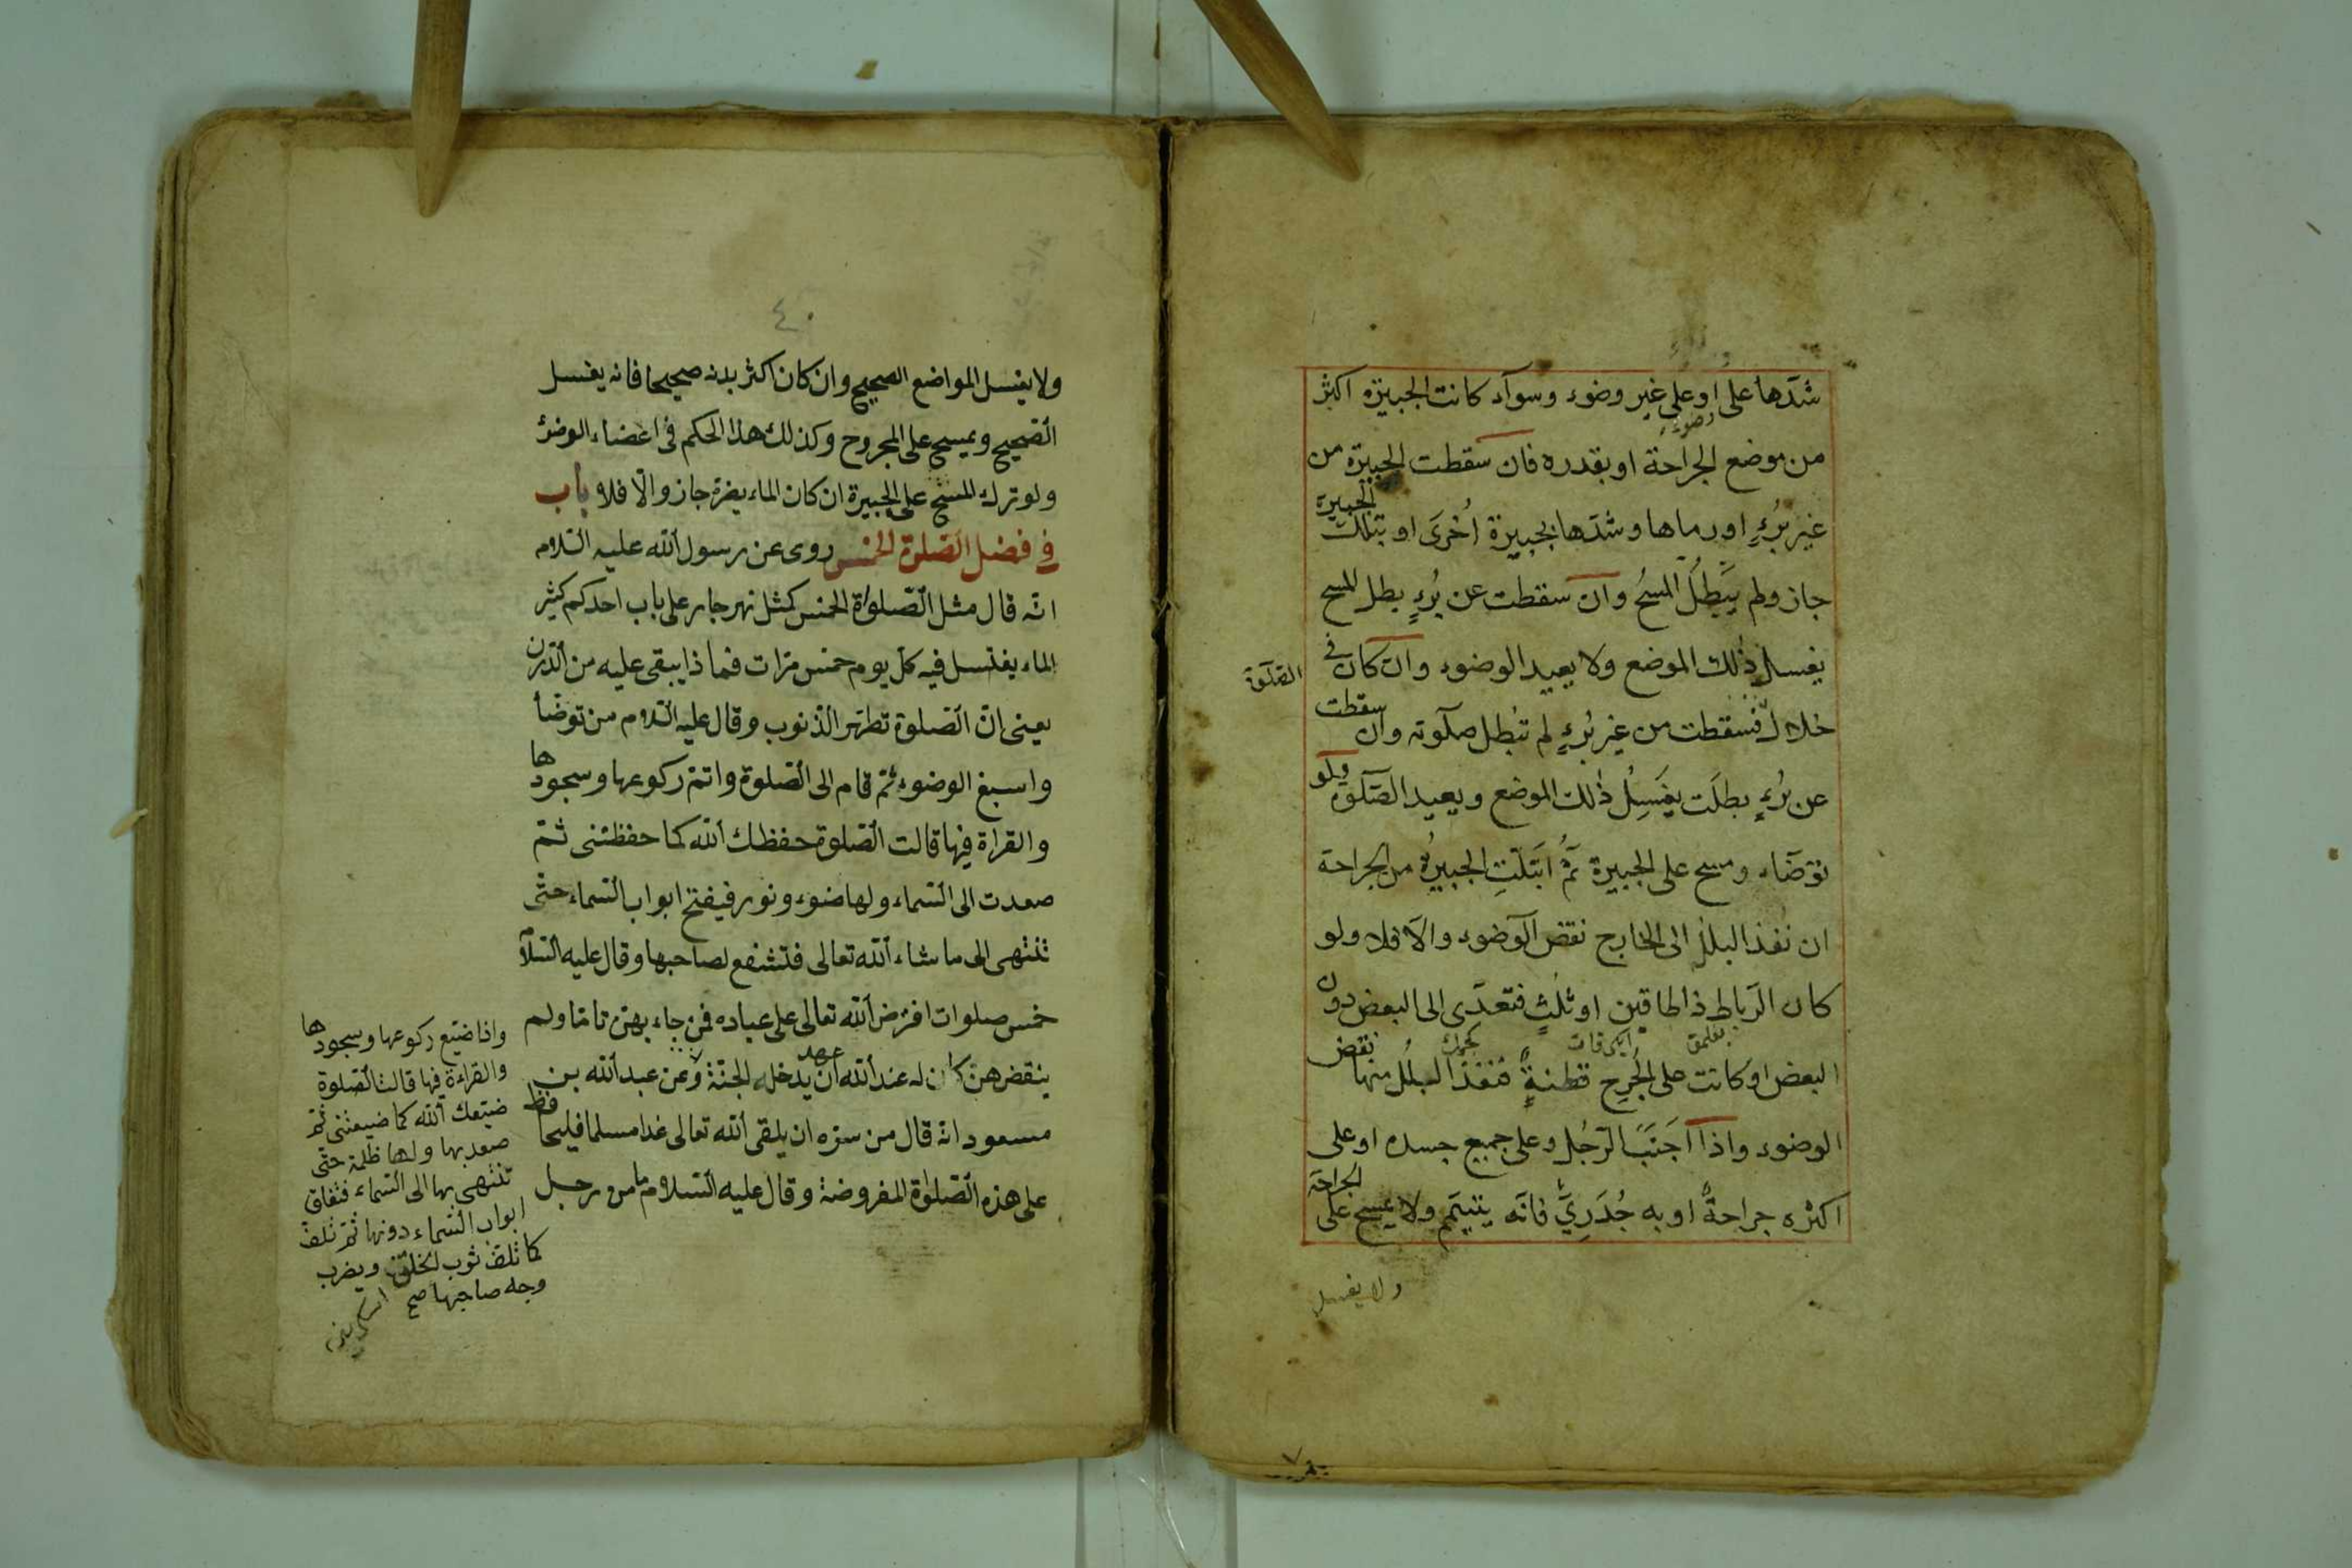 شدّها على او على غير وضوء وسوآء كانت الجبيرة اكبر
وضوء
من موضع الجراحة او بقدره فان سقطت الجبيرة من
غير بُرءٍ او رماها وشدّها بجبيرة اُخرَى او بتلك الجبيرة
جاز ولم يَبطُل المسحُ وان سقطت عن بُرءٍ بطل المسح
يغسل ذٰلك الموضع ولا يعيد الوضوء وان كان في
الصّلٰوة
خلال فسقطت من غير بُرءٍ لم تبطل صلٰوته وان سقطت
عن بُرءٍ بطلَت يغسِلُ ذٰلك الموضع ويعيد الصّلٰوة ولو
توضّاء ومسح على الجبيرة ثمّ ابتلّتِ الجبيرةُ من الجراحة
ان نفذ البلل الى الخارج نقض الوضوء والّا فلا ولو
كان الرّباط ذا طاقين او ثلثٍ فتعدّى الى البعض دون
البعض او كانت على الجُرحِ قطنةٌ فنفذ البلل منها نقض
الوضوء واذا اَجنَبَ الرّجُل وعلى جميع جسده او على
اكثره جراحةٌ او به جُدَرِيٌّ فانّه يتيمّم ولا يمسح على الجراحة
ولا يغسل
٤٠
ولا يغسل المواضع الصحيح وان كان اكثر بدنه صحيحا فانه يغسل
الصّحيح ويمسح على المجروح وكذلك هذا الحكم فى اعضاء الوضؤ
ولو ترك المسح على الجبيرة ان كان الماء يضرّه جاز والّا فلا باب
فى فضل الصّلوة الخمس روى عن رسول اللّه عليه السّلام
انّه قال مثل الصّلوٰة الخمس كمثل نهر جار على باب احدكم كثير
الماء يغتسل فيه كلّ يوم خمس مرّات فما ذا يبقى عليه من الدّرن
يعنى انّ الصّلوة تطهّر الذّنوب وقال عليه السّلام من توضّأ
واسبغ الوضوء ثمّ قام الى الصّلوة واتمّ ركوعها وسجودها
والقراة فيها قالت الصّلوة حفظك اللّه كما حفظتنى ثمّ
صعدت الى السّماء ولها ضوء ونور فيفتح ابواب السّماء حتّى
تنتهى الى ما شاء اللّه تعالى فتشفع لصاحبها وقال عليه السّلام
خمس صلوات افترض اللّه تعالى على عباده فمن جاء بهنّ تامّا ولم
ينقضهن كان له عند اللّه عهد ان يدخله الجنّة وعن عبد اللّه بن
مسعود انّه قال من سرّه ان يلقى اللّه تعالى غدا مسلما فليحافظ
على هذه الصّلوٰة المفروضة وقال عليه السّلام ما من رجل
واذا ضيّع ركوعها وسجودها
والقراءة فيها قالت الصّلوة
ضيّعك اللّه كما ضيعتنى ثمّ
صعد بها ولها ظلمة حتّى
تنتهى بها الى السّماء فتغلق
ابواب السّماء دونها ثمّ تلفّ
كما تلفّ ثوب الخلق ويضرب
وجه صاحبها صح